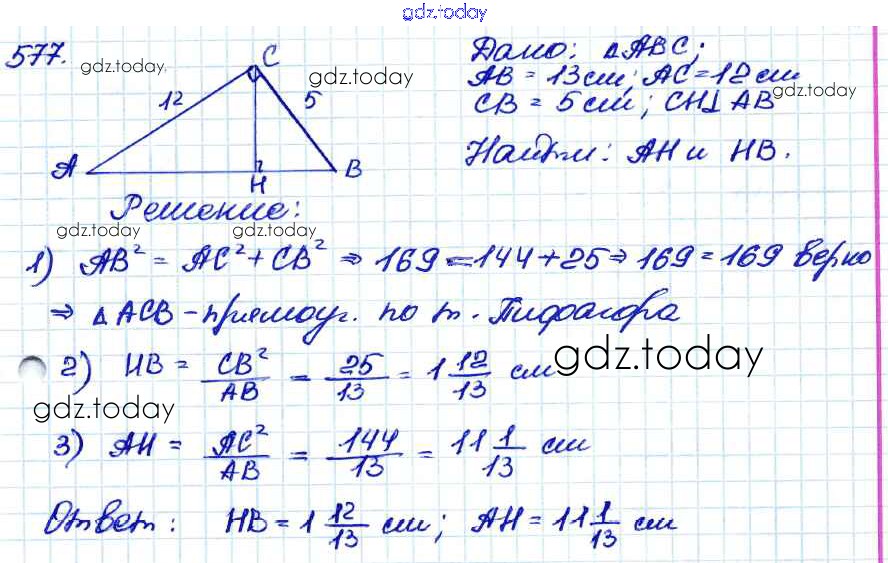 gdz.today
577.
C
gdz.today
gdz.today
12
5
A
H
B
Дано: △ABC;
AB = 13 см; AC = 12 см
gdz.today
CB = 5 см; CH⊥AB
Найти: AH и HB.
Решение:
gdz.today
gdz.today
1) AB² = AC² + CB² ⇒ 169 = 144 + 25 ⇒ 169 = 169 верно
⇒ △ACB - прямоуг. по т. Пифагора
2) HB = CB²/AB = 25/13 = 1 12/13 см
gdz.today
gdz.today
3) AH = AC²/AB = 144/13 = 11 1/13 см
Ответ: HB = 1 12/13 см; AH = 11 1/13 см